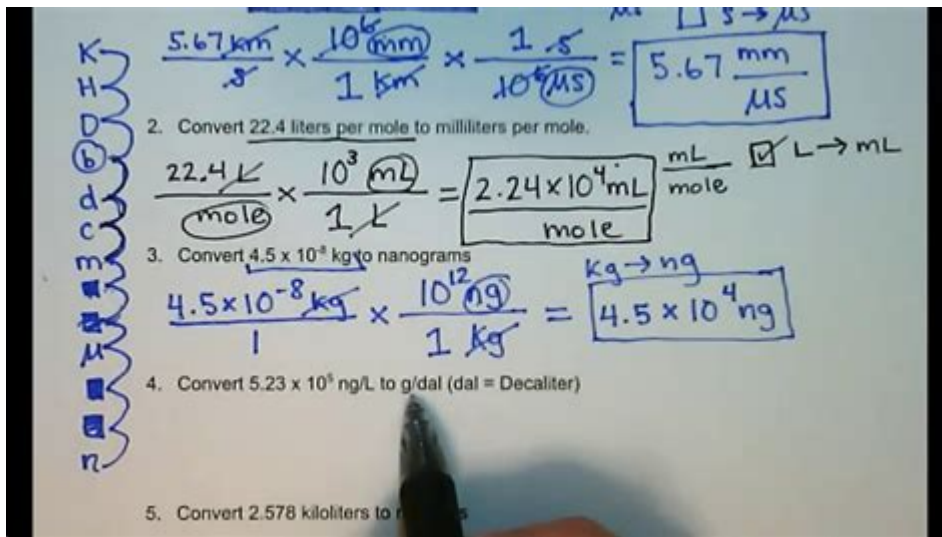 μs □ s → μs
5.67 km/s × 10⁶ mm/1 km × 1 s/10⁶ μs = 5.67 mm/μs
K
H
D
b
d
c
m
μ
n
2. Convert 22.4 liters per mole to milliliters per mole.
22.4 L/mole × 10³ mL/1 L = 2.24 × 10⁴ mL/mole mL/mole ☑ L → mL
3. Convert 4.5 x 10⁻⁸ kg to nanograms
kg → ng
4.5 × 10⁻⁸ kg/1 × 10¹² ng/1 kg = 4.5 × 10⁴ ng
4. Convert 5.23 x 10⁵ ng/L to g/dal (dal = Decaliter)
5. Convert 2.578 kiloliters to